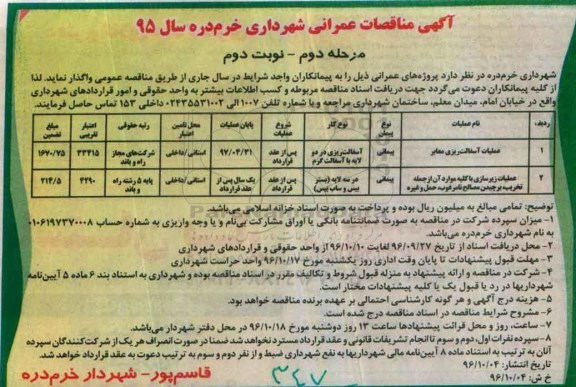 آگهی مناقصات عمرانی شهرداری خرم‌دره سال ۹۵
مرحله دوم - نوبت دوم
شهرداری خرم‌دره در نظر دارد پروژه‌های عمرانی ذیل را به پیمانکاران واجد شرایط در سال جاری از طریق مناقصه عمومی واگذار نماید. لذا
از کلیه پیمانکاران دعوت می‌گردد جهت دریافت اسناد مناقصه مربوطه و کسب اطلاعات بیشتر به واحد حقوقی و امور قراردادهای شهرداری
واقع در خیابان امام، میدان معلم، ساختمان شهرداری مراجعه و یا شماره تلفن ۱۰۰۷ الی ۰۲۴۳۵۵۳۱۰۰۲ داخلی ۱۵۳ تماس حاصل فرمایند.
ردیف نام عملیات نوع پیمان نوع کار شروع عملیات پایان عملیات محل تامین اعتبار رتبه حقوقی اعتبار تقریبی مبلغ تضمین
۱ عملیات آسفالت‌ریزی معابر پیمانی آسفالت‌ریزی در دو لایه با آسفالت گرم پس از عقد قرارداد ۹۷/۰۴/۳۱ استانی/داخلی شرکت‌های مجاز راه و باند ۳۳۴۱۵ ۱۶۷۰/۷۵
۲ عملیات زیرسازی با کلیه موارد آن از جمله تخریب، برچیدن مصالح نامرغوب، حمل و غیره پیمانی در سه لایه (بستر بیس و ساب بیس) پس از عقد قرارداد یک سال پس از عقد قرارداد استانی/داخلی پایه ۵ رشته راه و باند ۴۲۹۰ ۲۱۴/۵
توضیح: تمامی مبالغ به میلیون ریال بوده و پرداخت به صورت اسناد خزانه اسلامی می‌باشد.
۱- میزان سپرده شرکت در مناقصه به صورت ضمانتنامه بانکی یا اوراق مشارکت بی‌نام و یا وجه واریزی به شماره حساب ۰۱۰۶۱۹۷۳۷۰۰۰۸
به نام شهرداری خرم‌دره می‌باشد.
۲- محل دریافت اسناد از تاریخ ۹۶/۰۹/۲۷ لغایت ۹۶/۱۰/۱۰ از واحد حقوقی و قراردادهای شهرداری
۳- مهلت قبول پیشنهادات تا پایان وقت اداری روز یکشنبه مورخ ۹۶/۱۰/۱۷ واحد حراست شهرداری
۴- شرکت در مناقصه و ارائه پیشنهاد به منزله قبول شروط و تکالیف مقرر در اسناد مناقصه بوده و شهرداری به استناد بند ۶ ماده ۵ آیین‌نامه
شهرداریها در رد یا قبول یک یا کلیه پیشنهادات مختار است.
۵- هزینه درج آگهی و هر گونه کارشناسی احتمالی بر عهده برنده مناقصه خواهد بود.
۶- مشروح شرایط مناقصه در اسناد مناقصه درج شده است.
۷- ساعت، روز و محل قرائت پیشنهادها ساعت ۱۳ روز دوشنبه مورخ ۹۶/۱۰/۱۸ در محل دفتر شهردار می‌باشد.
۸- سپرده نفرات اول، دوم و سوم تا انجام تشریفات قانونی و عقد قرارداد مسترد نخواهد شد ضمنا در صورت انصراف هر یک از شرکت‌کنندگان سپرده
آنان به ترتیب به استناد ماده ۸ آیین‌نامه مالی شهرداریها به نفع شهرداری ضبط و از نفر دوم و سوم به ترتیب دعوت به عقد قرارداد خواهد شد.
تاریخ انتشار: ۹۶/۱۰/۰۴
خ ش: ۹۶/۱۰/۰۴
۳۴۷
قاسم‌پور- شهردار خرم‌دره